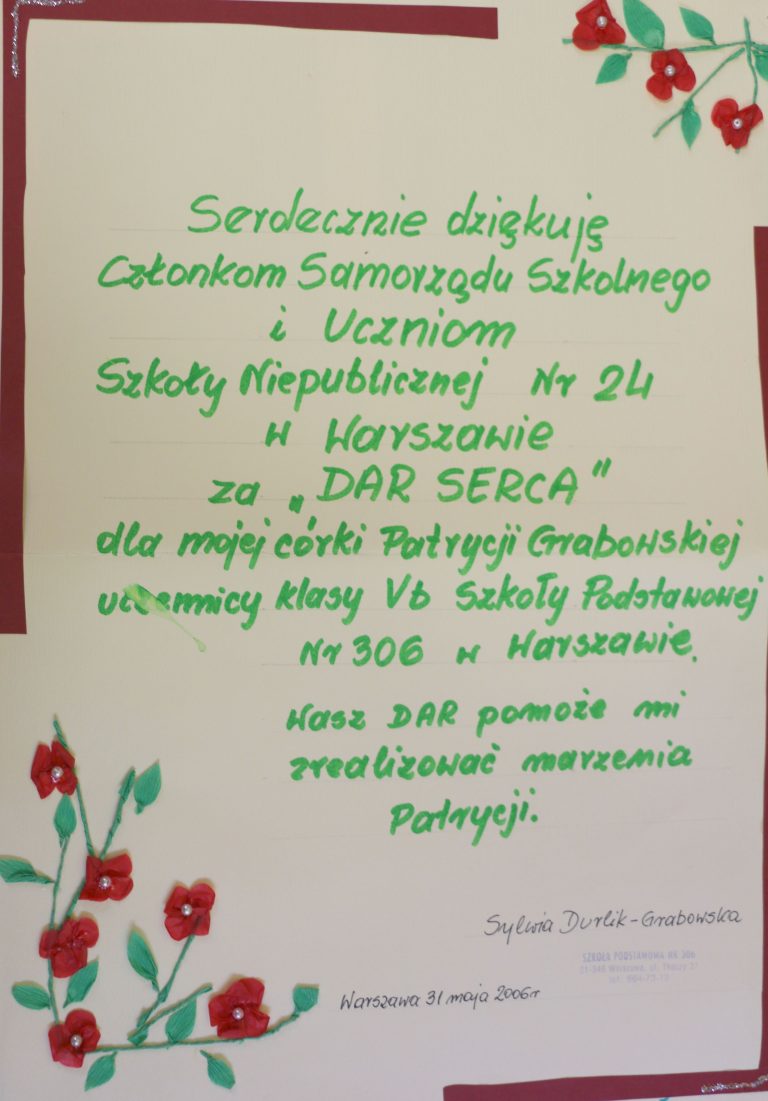 Serdecznie dziękuję
Członkom Samorządu Szkolnego
i Uczniom
Szkoły Niepublicznej Nr 24
w Warszawie
za „DAR SERCA”
dla mojej córki Patrycji Grabowskiej
uczennicy klasy Vb Szkoły Podstawowej
Nr 306 w Warszawie.
Wasz DAR pomoże mi
zrealizować marzenia
Patrycji.
Sylwia Durlik-Grabowska
SZKOŁA PODSTAWOWA NR 306
Warszawa, ul.
tel.
Warszawa 31 maja 2006r